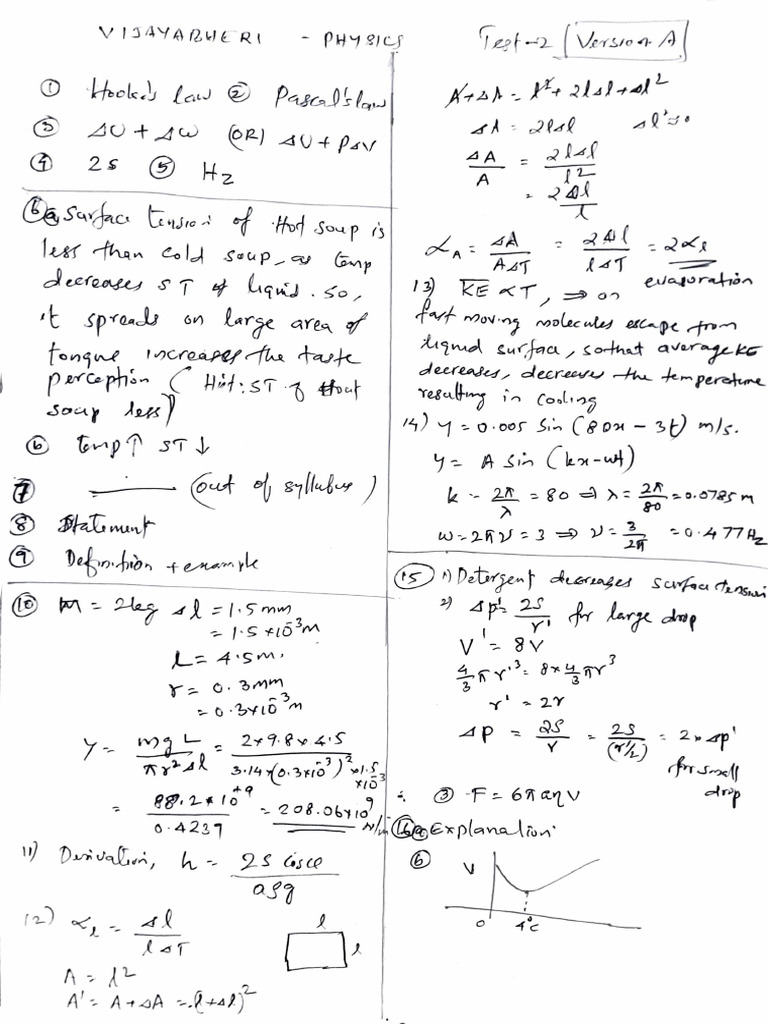 VIJAYABHERI - PHYSICS Test-2 Version A
① Hooke's law ② Pascal's law
③ ΔU + ΔW (OR) ΔU + PΔV
④ 2s ⑤ Hz
⑥ⓐ Surface tension of Hot soup is
less than cold soup, as temp
decreases ST of liquid. So,
it spreads on large area of
tongue increases the taste
perception (Hint: ST of Hout
soup less)
ⓑ temp↑ ST↓
⑦ ——— (out of syllabus)
⑧ Statement
⑨ Definition + example
⑩ m = 2kg Δl = 1.5mm
= 1.5×10⁻³m
L = 4.5m.
r = 0.3mm
= 0.3×10⁻³m
Y = mgL/πr²Δl = 2×9.8×4.5/3.14×(0.3×10⁻³)²×1.5×10⁻³
= 88.2×10⁺⁹/0.4239 = 208.06×10⁹ N/m
11) Derivation, h = 2S cosθ/aρg
12) α_l = Δl/lΔT
l
l
A = l²
A' = A+ΔA = (l+Δl)²
A+ΔA = l²+2lΔl+Δl²
ΔA = 2lΔl Δl²=0
ΔA/A = 2lΔl/l²
= 2Δl/l
α_A = ΔA/AΔT = 2Δl/lΔT = 2α_l
13) K̅E̅ ∝T, ⇒ on evaporation
fast moving molecules escape from
liquid surface, so that average KE
decreases, decreases the temperature
resulting in cooling
14) y = 0.005 Sin (80x - 3t) m/s.
y = A sin (kx-ωt)
k = 2π/λ = 80 ⇒ λ = 2π/80 = 0.0785 m
ω = 2πν = 3 ⇒ ν = 3/2π = 0.477Hz
⑮ 1) Detergent decreases surface tension
2) Δp' = 2S/r' for large drop
V' = 8V
4/3 πr'³ = 8×4/3 πr³
r' = 2r
ΔP = 2S/r = 2S/(r'/2) = 2×Δp'
for small
drop
③ F = 6πaηV
⑯ⓐ Explanation
ⓑ V
0 4°C